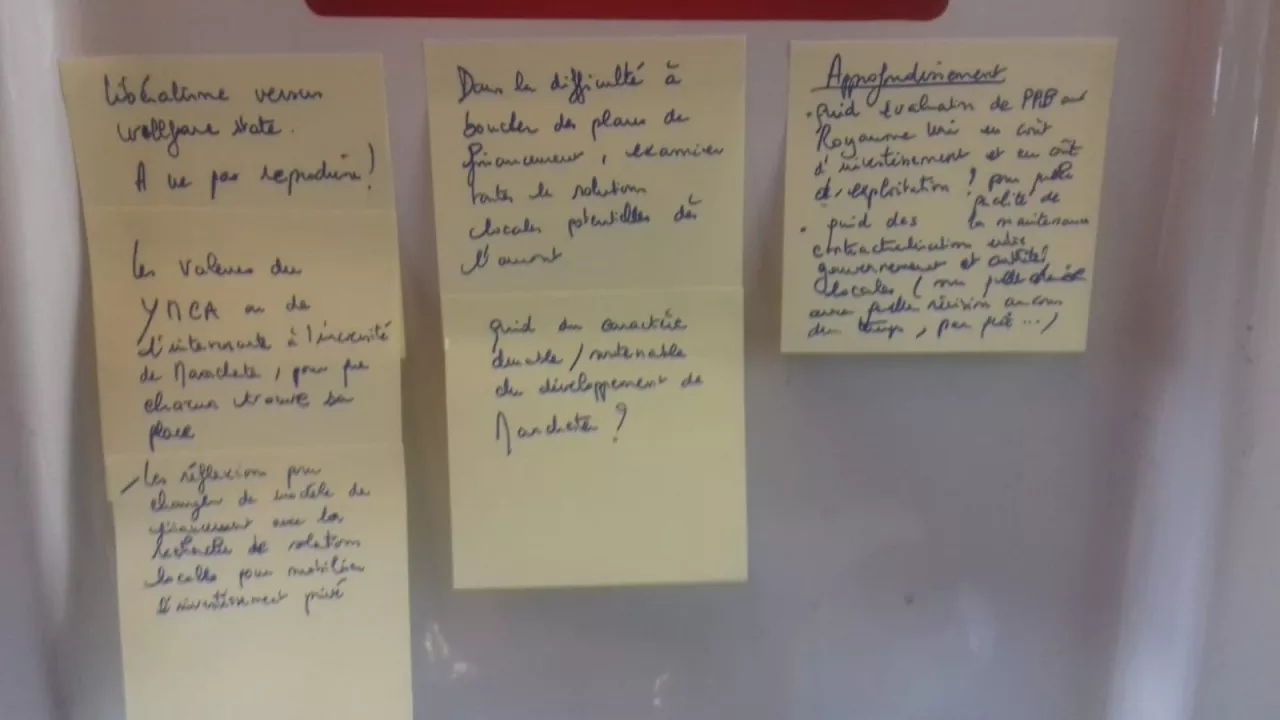 Libéralisme versus
wellfare state.
A ne pas reproduire !
Les valeurs du
YMCA ou de
à l'université
de Manchester, pour que
chacun trouve sa
place
Les réflexions pour
changer de modèle de
financement avec les
recherches de solutions
locales pour mobiliser
l'investissement privé
Dans la difficulté à
boucler des plans de
financement, examiner
toutes le solutions
locales potentielles dès
l'amont
quid du caractère
durable / soutenable
du développement de
Manchester ?
Approfondissement
• quid évaluation de PPP au
Royaume Uni en coût
d'investissement et en coût
d'exploitation ? pour quelle
facilité de
la maintenance
• quid des
contractualisation entre
gouvernement et entités
locales ( sur quelle durée
avec quelle révision au cours
du temps, par qui ... )